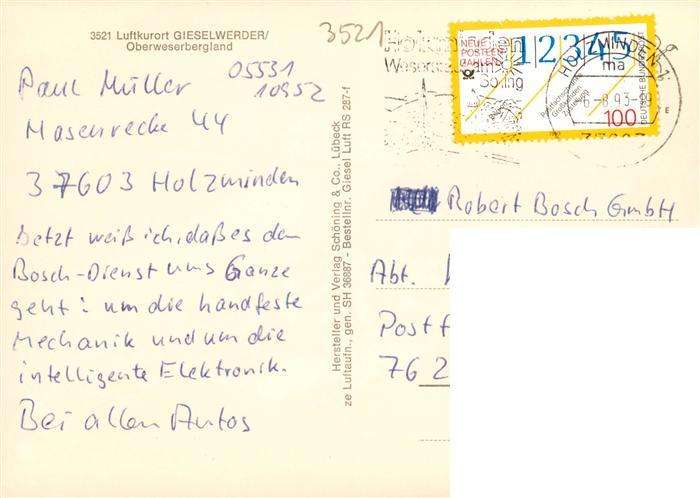 3521 Luftkurort GIESELWERDER/
Oberweserbergland
Paul Müller 05531
10952
Masenrecke 44
37603 Holzminden
Jetzt weiß ich, daß es dem
Bosch-Dienst ums Ganze
geht: um die handfeste
Mechanik und um die
intelligente Elektronik.
Bei allen Autos
Hersteller und Verlag Schöning & Co., Lübeck
ze Luftaufn., gen. SH 36887 - Bestellnr. Giesel Luft RS 287-f
3521
NEUE
POSTLEIT
ZAHLEN
12345
Postfachzustellung
DEUTSCHE BUNDESPOST
100
Solling
HOLZMINDEN 1
ma
-6.-8.93-
37603
Robert Bosch GmbH
Abt.
Postf
762